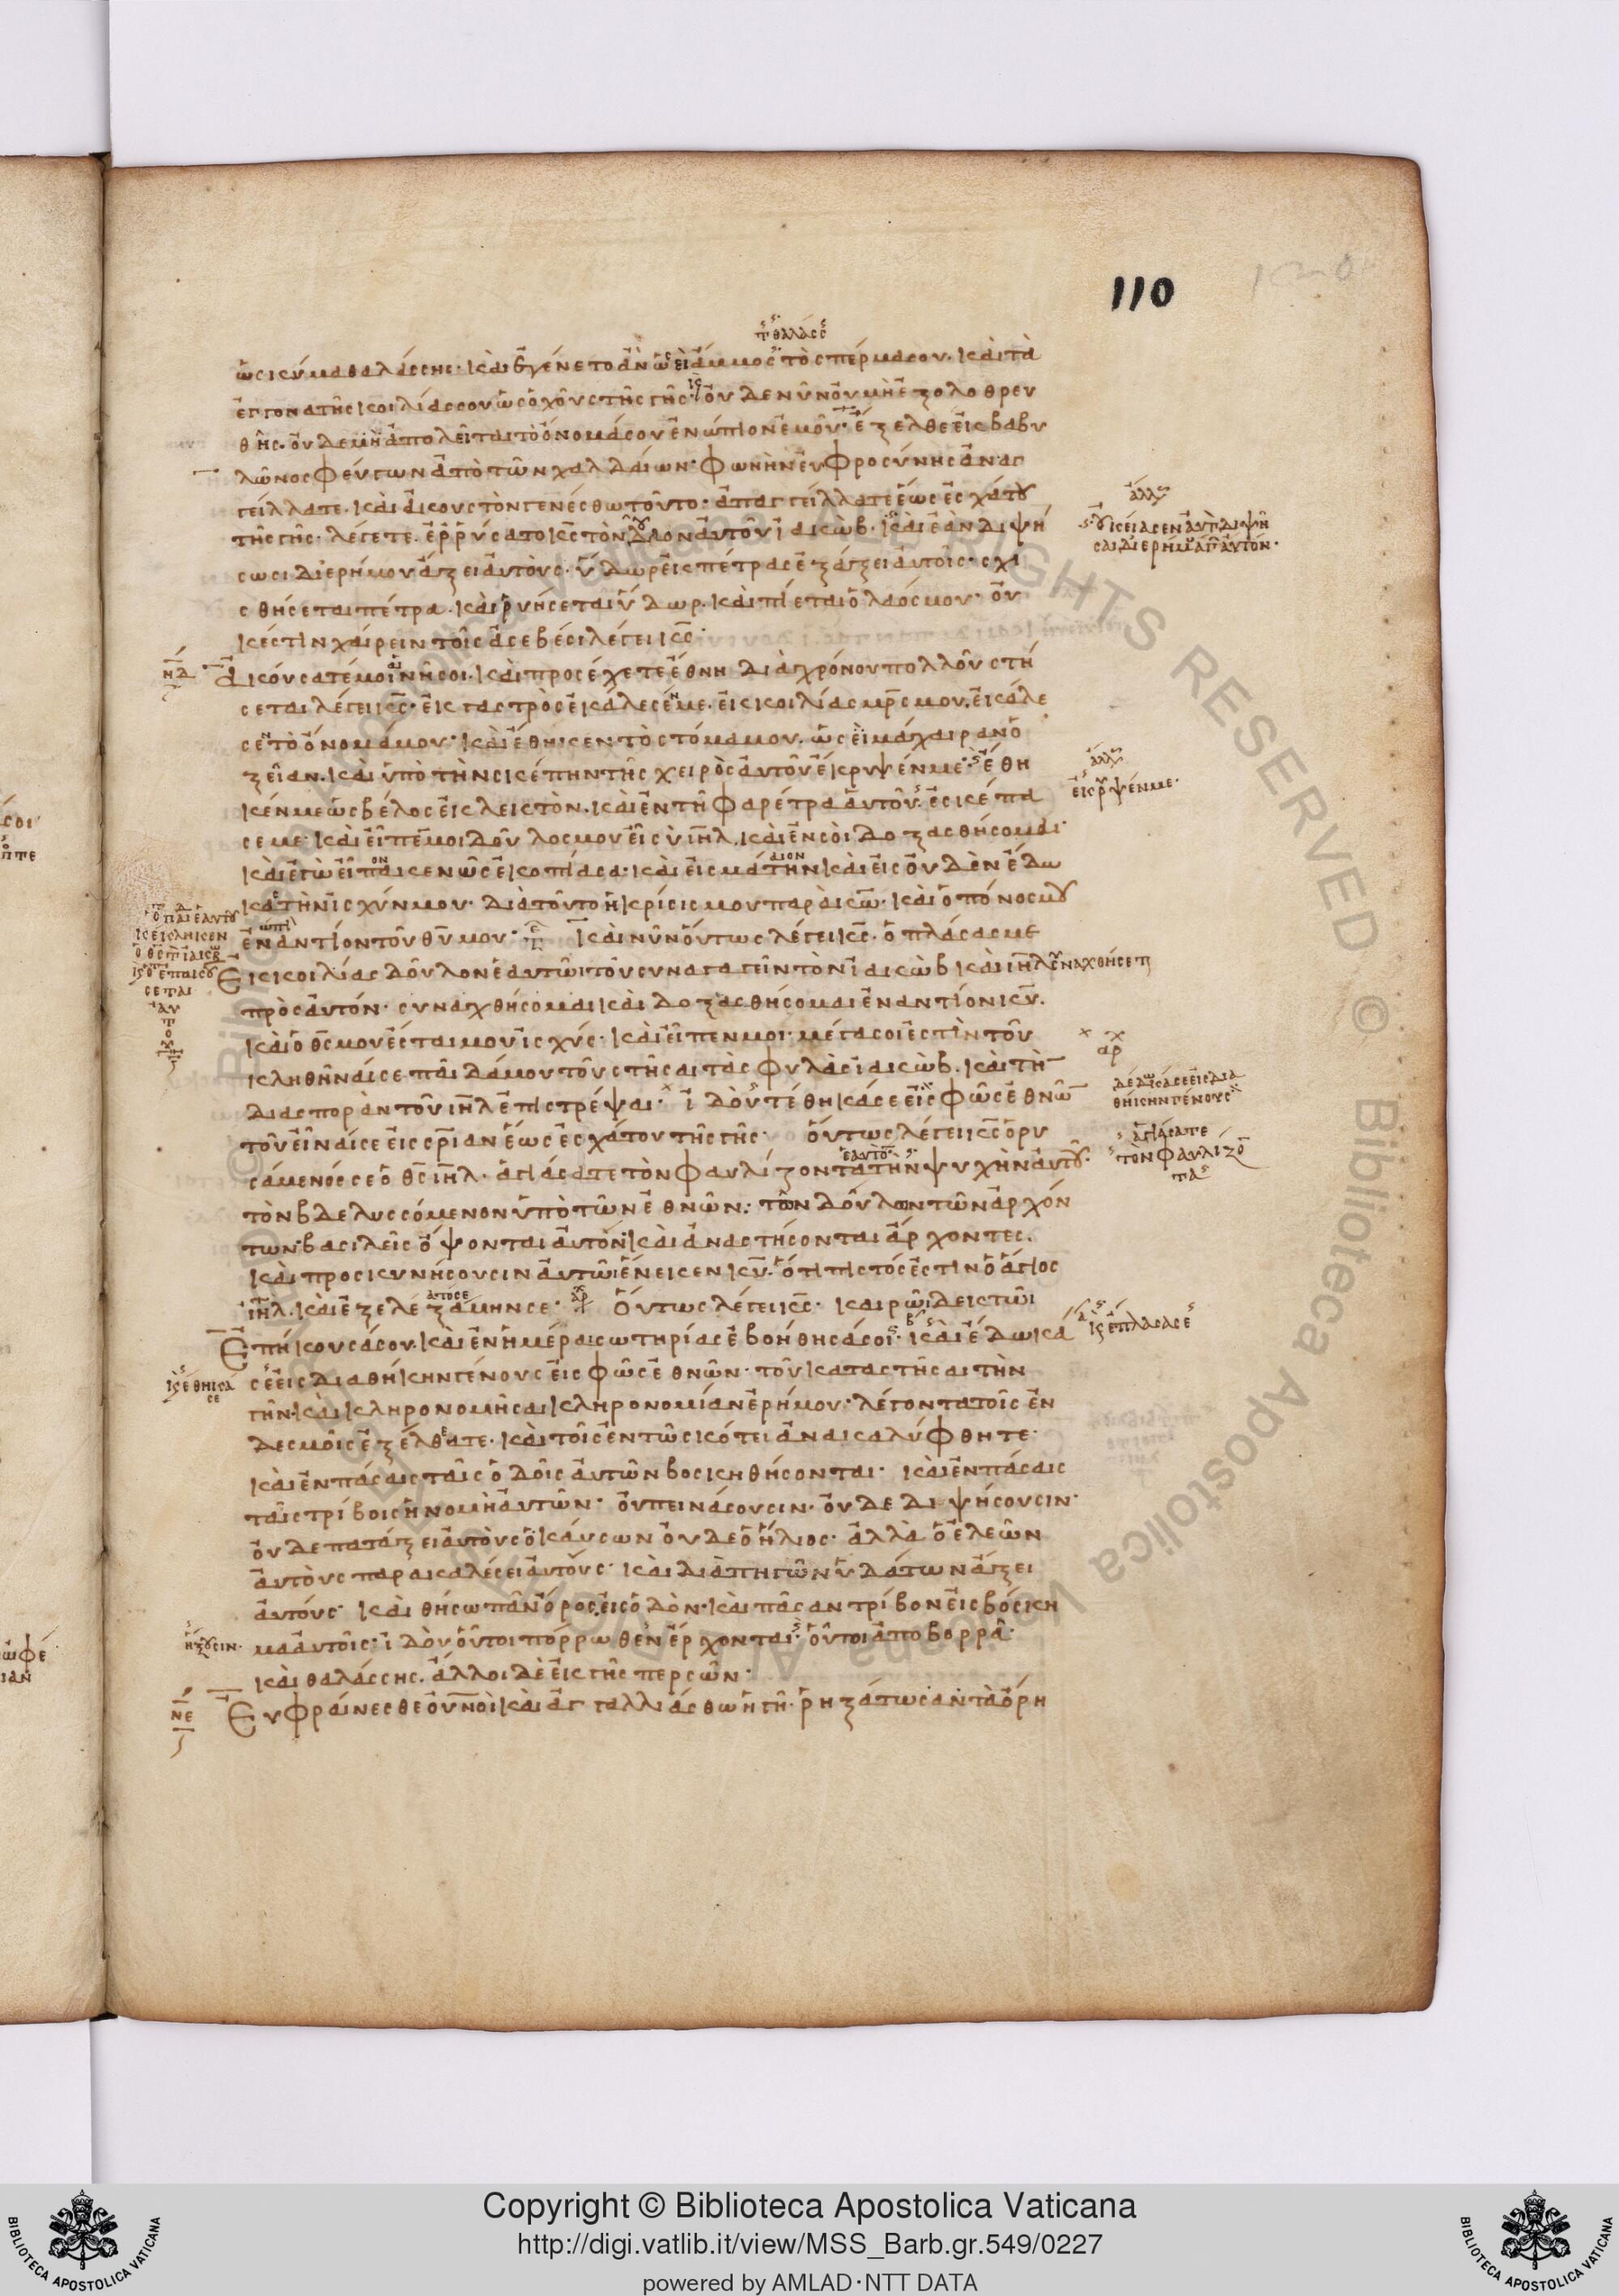 110
τῆς θαλάσσης
ὡς κῦμα θαλάσσης· καὶ ἐγένετο ἂν ὡσεὶ ἄμμος τὸ σπέρμα σου· καὶ τὰ
ἔκγονα τῆς κοιλίας σου ὡς ὁ χοῦς τῆς γῆς· οὐδὲ νῦν οὐ μὴ ἐξολοθρευ
θῆς· οὐδὲ μὴ ἀπολεῖται τὸ ὄνομά σου ἐνώπιον ἐμοῦ· ἔξελθε ἐκ βαβυ
λῶνος φεύγων ἀπὸ τῶν χαλδαίων· φωνὴν εὐφροσύνης ἀναγ
γείλατε· καὶ ἀκουστὸν γενέσθω τοῦτο· ἀπαγγείλατε ἕως ἐσχάτου
τῆς γῆς· λέγετε· ἐρρύσατο κς τὸν δοῦλον αὐτοῦ ἰακώβ· καὶ ἐὰν διψή
σωσι δι ἐρήμου ἄξει αὐτούς· ὕδωρ ἐκ πέτρας ἐξάξει αὐτοῖς· σχι
σθήσεται πέτρα· καὶ ῥυήσεται ὕδωρ· καὶ πίεται ὁ λαός μου· οὐ
κ ἔστιν χαίρειν τοῖς ἀσεβέσι λέγει κς·
ἀκούσατέ μοι νῆσοι· καὶ προσέχετε ἔθνη· διὰ χρόνου πολλοῦ στή
σεται λέγει κς· ἐκ γαστρὸς ἐκάλεσέν με· ἐκ κοιλίας μρς μου· ἐκάλε
σεν τὸ ὄνομά μου· καὶ ἔθηκεν τὸ στόμα μου· ὡσεὶ μάχαιραν ὀ
ξεῖαν· καὶ ὑπὸ τὴν σκέπην τῆς χειρὸς αὐτοῦ ἔκρυψέν με· ἔθη
κέν με ὡς βέλος ἐκλεκτὸν· καὶ ἐν τῆ φαρέτρα αὐτοῦ ἐσκέπα
σέ με· καὶ εἶπέ μοι δοῦλός μου εἶ σὺ ιηλ· καὶ ἐν σοὶ δοξασθήσομαι·
καὶ ἐγὼ εἶπα κενῶς ἐκοπίασα· καὶ εἰς μάτην καὶ εἰς οὐδὲν ἔδω
κα τὴν ἰσχύν μου· διὰ τοῦτο ἡ κρίσις μου παρὰ κω· καὶ ὁ πόνος μου
ἐναντίον τοῦ θυ μου· καὶ νῦν οὕτως λέγει κς· ὁ πλάσας με
ἐκ κοιλίας δοῦλον ἑαυτῶι τοῦ συναγαγεῖν τὸν ἰακὼβ καὶ ιηλ συναχθήσεται
πρὸς αὐτόν· συναχθήσομαι καὶ δοξασθήσομαι ἐναντίον κυ·
καὶ ὁ θς μου ἔσται μου ἰσχύς· καὶ εἶπεν μοι· μέγα σοι ἐστὶν τοῦ
κληθῆναί σε παῖδά μου τοῦ στῆσαι τὰς φυλὰς ἰακώβ· καὶ τὴν
διασπορὰν τοῦ ιηλ ἐπιστρέψαι· ἰδοὺ τέθηκά σε εἰς φῶς ἐθνῶν
τοῦ εἶναί σε εἰς σριαν ἕως ἐσχάτου τῆς γῆς· οὕτως λέγει κς ὁ ῥυ
σάμενός σε ὁ θς ιηλ· ἁγιάσατε τὸν φαυλίζοντα τὴν ψυχὴν αὐτοῦ·
τὸν βδελυσσόμενον ὑπὸ τῶν ἐθνῶν· τὸν δοῦλον τῶν ἀρχόν
των· βασιλεῖς ὄψονται αὐτὸν· καὶ ἀναστήσονται ἄρχοντες·
καὶ προσκυνήσουσιν αὐτῶι ἕνεκεν κυ· ὅτι πιστός ἐστιν ὁ ἅγιος
ιηλ· καὶ ἐξελεξάμην σε· οὕτως λέγει κς· καιρῶι δεκτῶι
ἐπήκουσά σου· καὶ ἐν ἡμέρα σωτηρίας ἐβοήθησά σοι· καὶ ἔδωκα
σε εἰς διαθήκην γένους εἰς φῶς ἐθνῶν· τοῦ καταστῆσαι τὴν
γῆν· καὶ κληρονομῆσαι κληρονομίαν ἐρήμου· λέγοντα τοῖς ἐν
δεσμοῖς ἐξέλθατε· καὶ τοῖς ἐν τῶ σκότει ἀνακαλύφθητε·
καὶ ἐν πάσαις ταῖς ὁδοῖς αὐτῶν βοσκηθήσονται· καὶ ἐν πάσαις
ταῖς τρίβοις ἡ νομὴ αὐτῶν· οὐ πεινάσουσιν· οὐδὲ διψήσουσιν·
οὐδὲ πατάξει αὐτοὺς ὁ καύσων οὐδὲ ὁ ἥλιος· ἀλλὰ ὁ ἐλεῶν
αὐτοὺς παρακαλέσει αὐτούς· καὶ διὰ πηγῶν ὑδάτων ἄξει
αὐτούς· καὶ θήσω πᾶν ὄρος εἰς ὁδὸν· καὶ πᾶσαν τρίβον εἰς βόσκη
μα αὐτοῖς· ἰδοὺ οὗτοι πόρρωθεν ἔρχονται· οὗτοι ἀπὸ βορρᾶ·
καὶ θαλάσσης· ἄλλοι δὲ ἐκ γῆς περσῶν·
εὐφραίνεσθε οὐνοὶ καὶ ἀγαλλιάσθω ἡ γῆ· ῥηξάτωσαν τὰ ὄρη
ἁγιάσατε
τὸν φαυλίζο
τα
ἥξουσιν·
νδ
νε
Copyright © Biblioteca Apostolica Vaticana
http://digi.vatlib.it/view/MSS_Barb.gr.549/0227
powered by AMLAD·NTT DATA
BIBLIOTECA APOSTOLICA VATICANA
BIBLIOTECA APOSTOLICA VATICANA